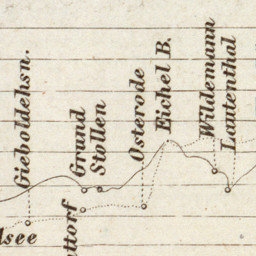 Gieboldehsn.
Grund
Stollen
Osterode
Eichel B.
Wildemann
Lautenthal